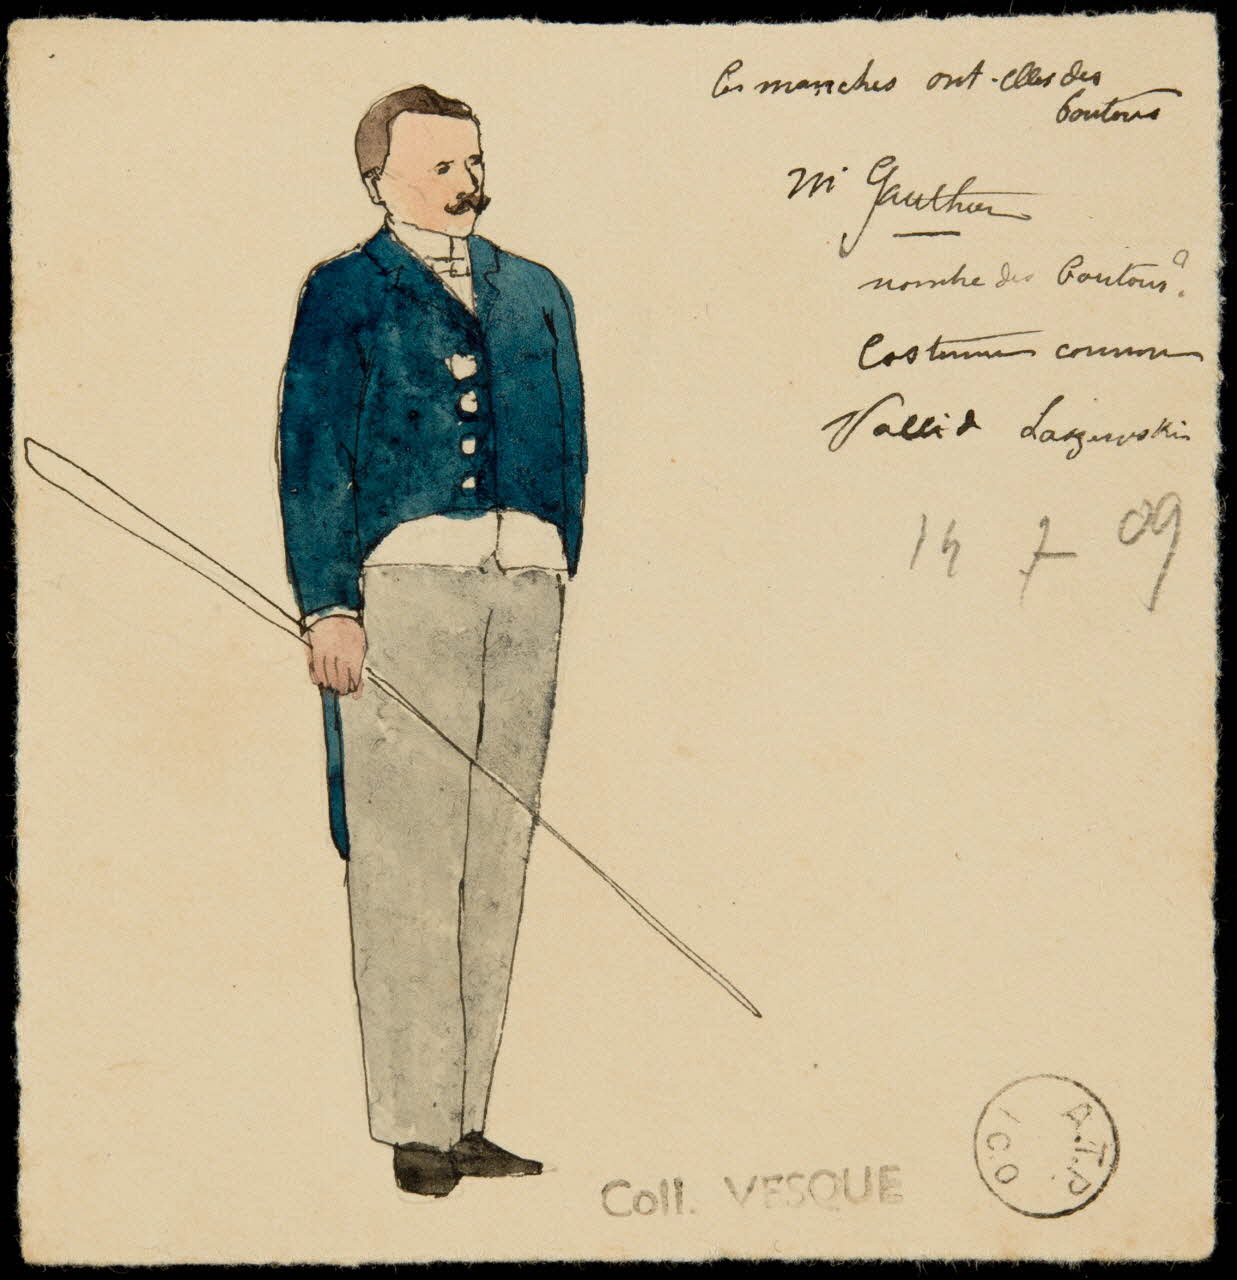 Les manches ont-elles des
boutons
Mr Gauthier
nombre des boutons?
Costumes connu
Vallid Lazewski
14 7 09
Coll. VESQUE
A.T.P
ICO